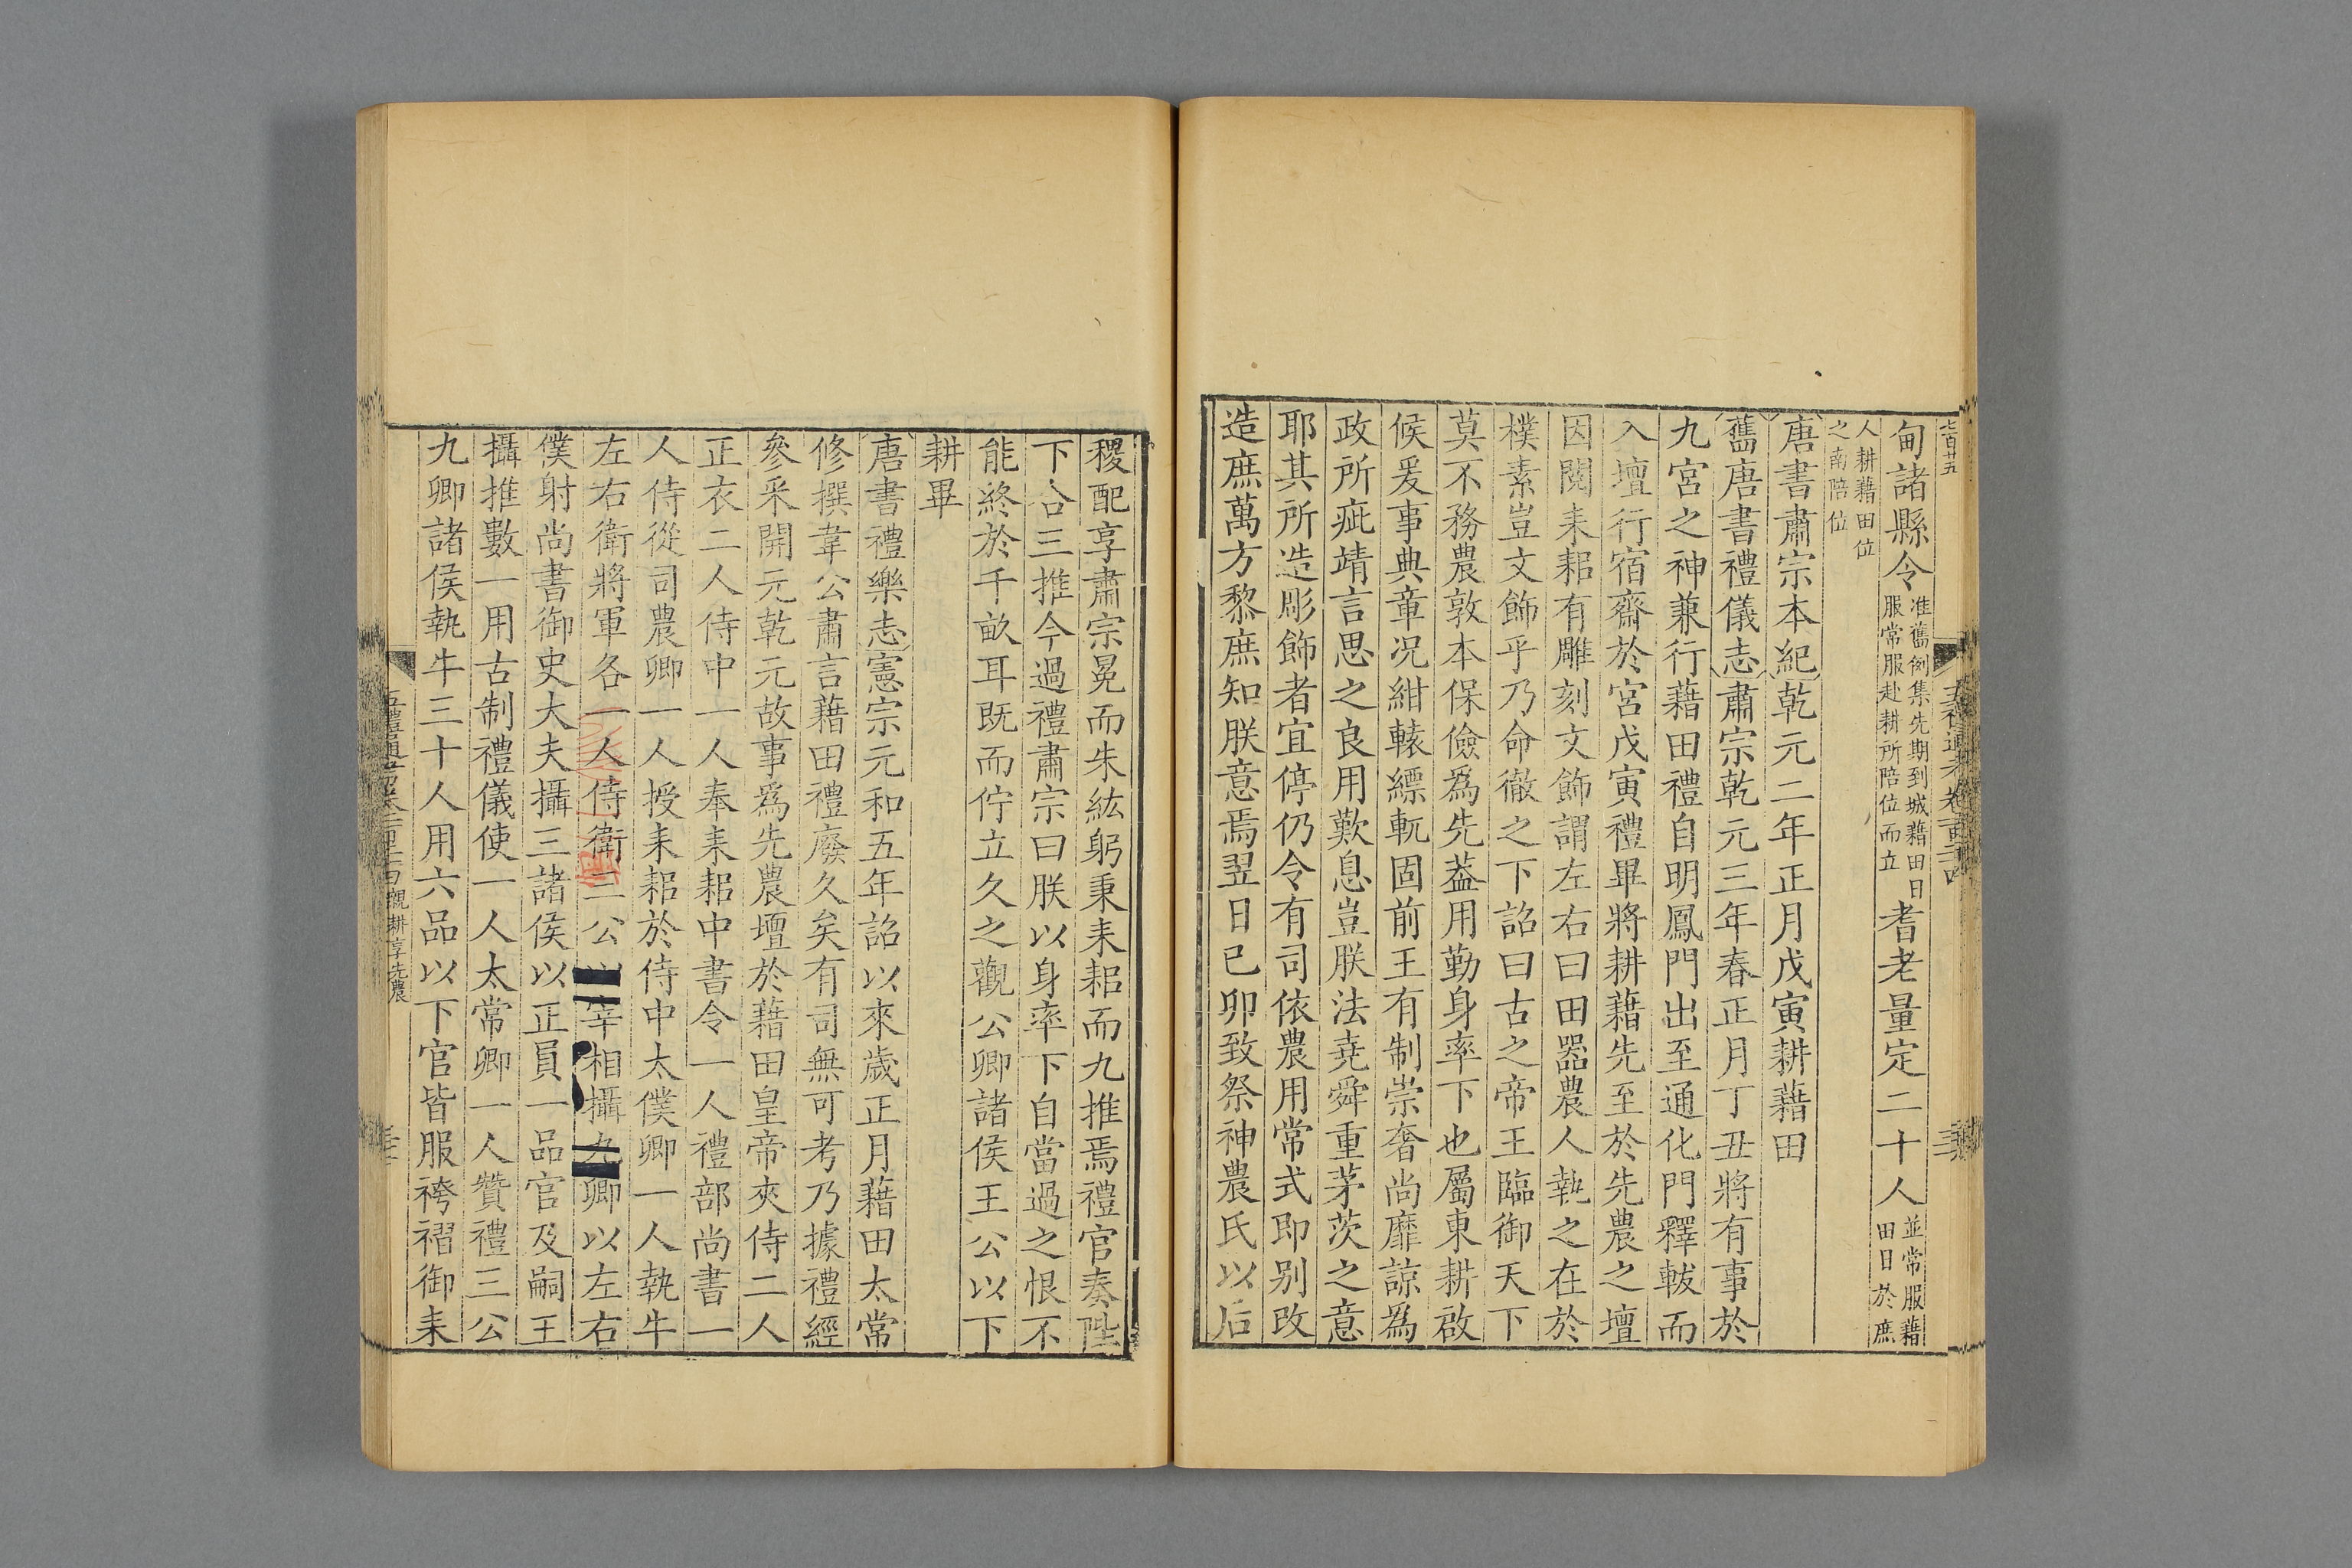 七百廿五
甸諸縣令准舊例集先期到城藉田日服常服赴耕所陪位而立耆老量定二十人並常服藉田日於庶
人耕藉田位之南陪位
唐書肅宗本紀乾元二年正月戊寅耕藉田
舊唐書禮儀志肅宗乾元三年春正月丁丑將有事於
九宮之神兼行藉田禮自明鳳門出至通化門釋軷而
入壇行宿齋於宮戊寅禮畢將耕藉先至於先農之壇
因閱耒耜有雕刻文飾謂左右曰田器農人執之在於
樸素豈文飾乎乃命徹之下詔曰古之帝王臨御天下
莫不務農敦本保儉為先葢用勤身率下也屬東耕啟
候爰事典章况紺轅縹軏固前王有制崇奢尚靡諒為
政所疵靖言思之良用歎息豈朕法堯舜重茅茨之意
耶其所造彫飾者宜停仍令有司依農用常式即别改
造庶萬方黎庶知朕意焉翌日已卯致祭神農氏以后
稷配享肅宗冕而朱紘躬秉耒耜而九推焉禮官奏陛
下合三推今過禮肅宗曰朕以身率下自當過之恨不
能終於千畝耳既而佇立久之觀公卿諸侯王公以下
耕畢
唐書禮樂志憲宗元和五年詔以來歲正月藉田太常
修撰韋公肅言藉田禮廢久矣有司無可考乃據禮經
參采開元乾元故事為先農壇於藉田皇帝夾侍二人
正衣二人侍中一人奉耒耜中書令一人禮部尚書一
人侍從司農卿一人授耒耜於侍中太僕卿一人執牛
左右衛將軍各一人侍衛三公以宰相攝九卿以左右
僕射尚書御史大夫攝三諸侯以正員一品官及嗣王
攝推數一用古制禮儀使一人太常卿一人贊禮三公
九卿諸侯執牛三十人用六品以下官皆服袴褶御耒
五禮通考卷一百二十四 親耕享先農